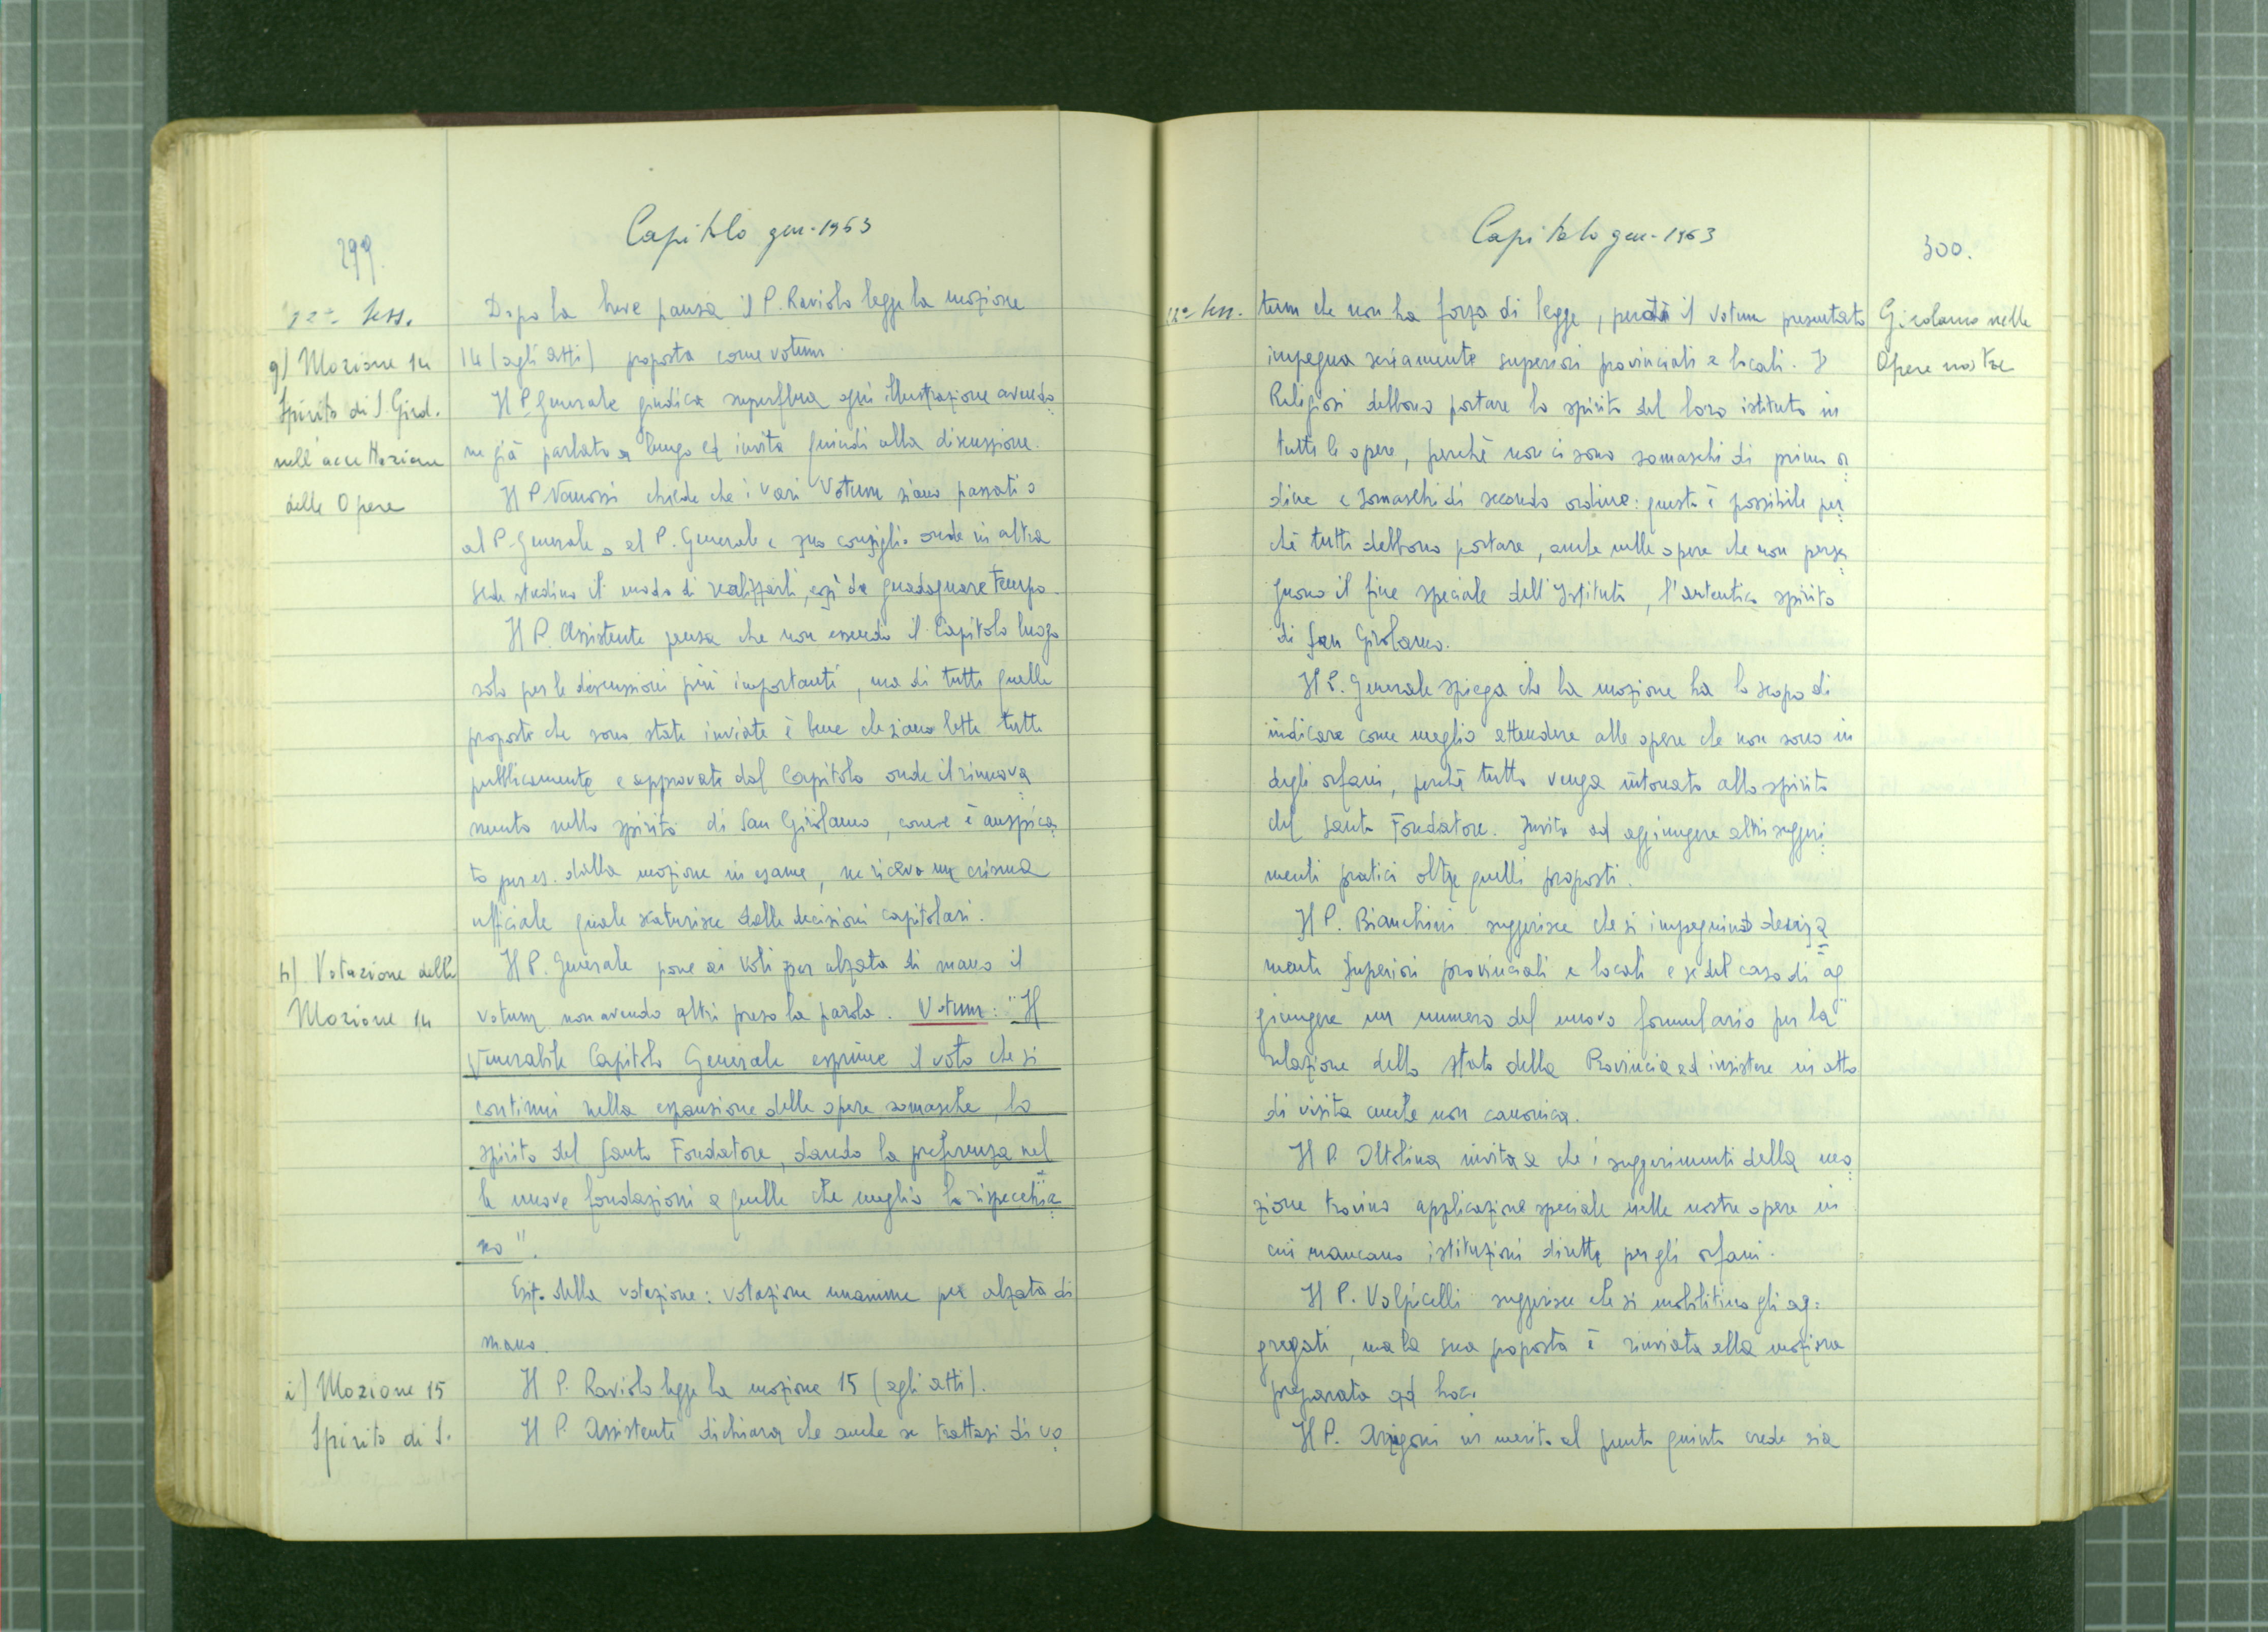 299.
Capitolo gen. 1963
12ª Sess.
g) Mozione 14
Spirito di S. Girol.
nell'accettazione
delle Opere
Dopo la breve pausa il P. Raviolo legge la mozione
14 (agli atti) proposta come votum.
Il P. Generale giudica superflua ogni illustrazione avendo
ne già parlato a lungo ed invita quindi alla discussione.
Il P. Vanossi chiede che i vari Votum siano passati o
al P. Generale o al P. Generale e suo consiglio onde in altra
sede studino il modo di realizzarli, così da guadagnare tempo.
Il P. Assistente pensa che non essendo il Capitolo luogo
solo per le discussioni più importanti, ma di tutte quelle
proposte che sono state inviate è bene che siano lette tutte
pubblicamente e approvate dal Capitolo onde il rinnova
mento nello spirito di San Girolamo, come è auspica
to per es. dalla mozione in esame, ne riceva un crisma
ufficiale quale scaturisce dalle decisioni capitolari.
h) Votazione della
Mozione 14
Il P. Generale pone ai voti per alzata di mano il
votum non avendo altri preso la parola. Votum: "Il
Venerabile Capitolo Generale esprime il voto che si
continui nella espansione delle opere somasche, lo
spirito del Santo Fondatore, dando la preferenza nel
le nuove fondazioni a quelle che meglio lo rispecchia
no".
Esito della votazione: votazione unanime per alzata di
mano.
i) Mozione 15
Spirito di S.
Il P. Raviolo legge la mozione 15 (agli atti).
Il P. Assistente dichiara che anche se trattasi di vo
Capitolo gen. 1963
300.
12ª Sess.
Girolamo nelle
Opere nostre
tum che non ha forza di legge, però il votum presentato
impegna seriamente superiori provinciali e locali. I
Religiosi debbono portare lo spirito del loro istituto in
tutte le opere, perchè non ci sono somaschi di primo or
dine e somaschi di secondo ordine: questo è possibile per
chè tutti debbono portare, anche nelle opere che non perse
guono il fine speciale dell'Istituto, l'autentico spirito
di San Girolamo.
Il P. Generale spiega che la mozione ha lo scopo di
indicare come meglio attendere alle opere che non sono in
degli orfani, perchè tutto venga intonato allo spirito
del Santo Fondatore. Invita ad aggiungere altri suggeri
menti pratici oltre quelli proposti.
Il P. Bianchini suggerisce che si impegnino decisa
mente Superiori provinciali e locali e se del caso di ag
giungere un numero del nuovo formulario per la
relazione dello stato della Provincia ed insistere in atto
di visita anche non canonica.
Il P. Oltolina invita a che i suggerimenti della mo
zione trovino applicazione speciale nelle nostre opere in
cui mancano istituzioni dirette per gli orfani.
Il P. Volpicelli suggerisce che si mobilitino gli ag=
gregati, ma la sua proposta è rinviata alla mozione
preparata ad hoc.
Il P. Arrigoni in merito al punto quinto crede sia